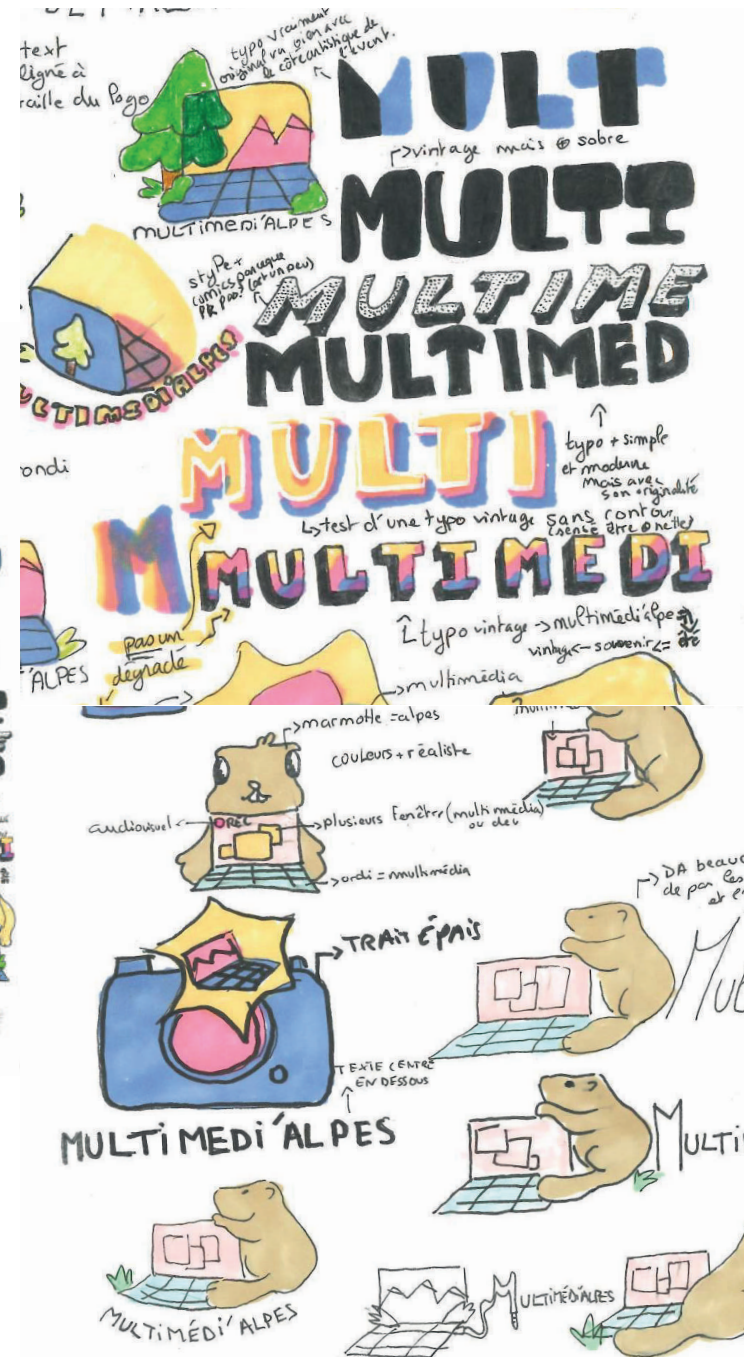 text
typo vraiment
original va bien avec
le côté artistique de
l'event.
MULT
↳vintage mais ⊕ sobre
MULTIMEDI'ALPES
MULTI
style +
MULTIME
MULTIMED
MULTIMEDI'ALPES
ondi
MULTI
typo + simple
et moderne
mais avec
son originalité
↳test d'une typo vintage sans contour
(sensé être ⊕ nette)
M
MULTIMEDI
↑typo vintage → multimedi'alpes
vintage ← souvenir <= été
pas un
dégradé
'ALPES
→multimédia
→marmotte =alpes
couleurs + réaliste
audiovisuel ←
REC
→plusieurs fenêtres (multimédia)
ou dev
→ordi = multimédia
→DA beauc
de par les
et l
→TRAIT ÉPAIS
MUL
TEXTE CENTRÉ
EN DESSOUS
MULTIMEDI'ALPES
MULTI
MULTIMÉDI'ALPES
MULTIMÉDI'ALPES